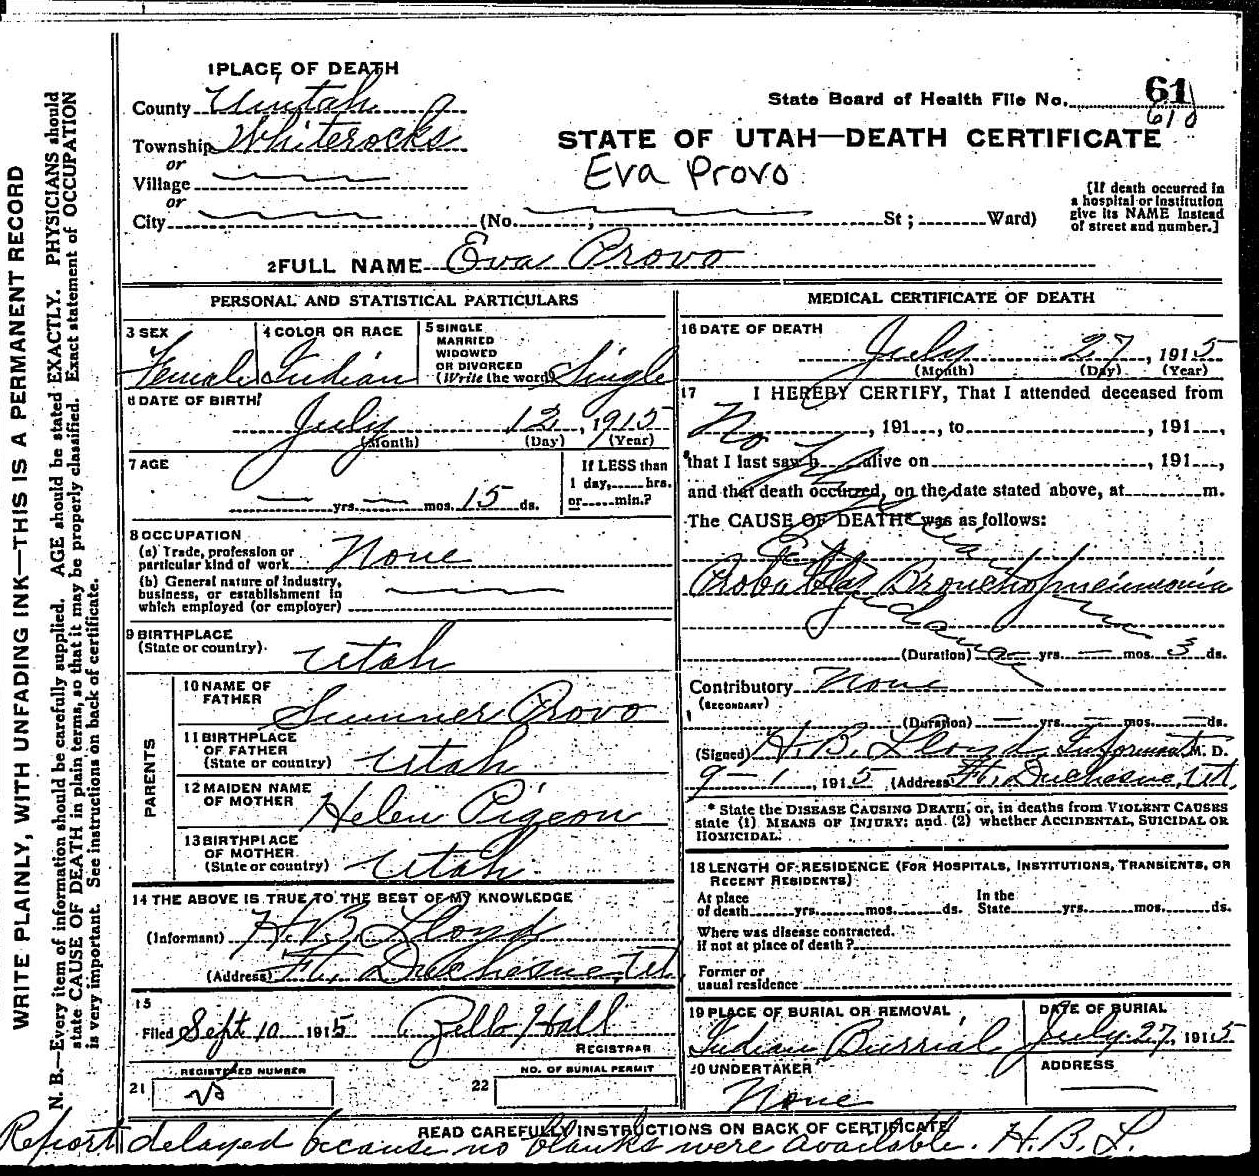 1 PLACE OF DEATH
County Uintah
State Board of Health File No. 61
610
Township Whiterocks
STATE OF UTAH—DEATH CERTIFICATE
or
Eva Provo
Village
or
City (No. , St ; Ward)
[If death occurred in
a hospital or institution
give its NAME instead
of street and number.]
2 FULL NAME Eva Provo
PERSONAL AND STATISTICAL PARTICULARS
3 SEX Female
4 COLOR OR RACE Indian
5 SINGLE
MARRIED
WIDOWED
OR DIVORCED
(Write the word) Single
6 DATE OF BIRTH
July 12, 1915
(Month) (Day) (Year)
7 AGE
— yrs. — mos. 15 ds.
If LESS than
1 day, hrs.
or min.?
8 OCCUPATION
(a) Trade, profession or
particular kind of work None
(b) General nature of industry,
business, or establishment in
which employed (or employer)
9 BIRTHPLACE
(State or country) Utah
PARENTS
10 NAME OF
FATHER Sumner Provo
11 BIRTHPLACE
OF FATHER
(State or country) Utah
12 MAIDEN NAME
OF MOTHER Helen Pigeon
13 BIRTHPLACE
OF MOTHER
(State or country) Utah
14 THE ABOVE IS TRUE TO THE BEST OF MY KNOWLEDGE
(Informant) H. B. Lloyd
(Address) Ft. Duchesne, Ut.
15
Filed Sept 10 1915 Zella Hall
REGISTRAR
21 REGISTERED NUMBER
22 NO. OF BURIAL PERMIT
MEDICAL CERTIFICATE OF DEATH
16 DATE OF DEATH
July 27, 1915
(Month) (Day) (Year)
17 I HEREBY CERTIFY, That I attended deceased from
, 191 , to , 191 ,
that I last saw h alive on , 191 ,
and that death occurred, on the date stated above, at m.
The CAUSE OF DEATH* was as follows:
No Physician in attendance
Probably Bronchopneumonia
(Duration) — yrs. — mos. 3 ds.
Contributory None
(SECONDARY)
(Duration) — yrs. — mos. — ds.
(Signed) H. B. Lloyd Informant M. D.
9-1 1915 (Address) Ft. Duchesne, Ut.
* State the DISEASE CAUSING DEATH, or, in deaths from VIOLENT CAUSES
state (1) MEANS OF INJURY; and (2) whether ACCIDENTAL, SUICIDAL OR
HOMICIDAL.
18 LENGTH OF RESIDENCE (FOR HOSPITALS, INSTITUTIONS, TRANSIENTS, OR
RECENT RESIDENTS)
At place In the
of death yrs. mos. ds. State yrs. mos. ds.
Where was disease contracted.
if not at place of death?
Former or
usual residence
19 PLACE OF BURIAL OR REMOVAL
Indian Burrial
DATE OF BURIAL
July 27, 1915
20 UNDERTAKER
None
ADDRESS
READ CAREFULLY INSTRUCTIONS ON BACK OF CERTIFICATE
Report delayed because no blanks were available. H. B. L.
WRITE PLAINLY, WITH UNFADING INK—THIS IS A PERMANENT RECORD
N. B.—Every item of information should be carefully supplied. AGE should be stated EXACTLY. PHYSICIANS should
state CAUSE OF DEATH in plain terms, so that it may be properly classified. Exact statement of OCCUPATION
is very important. See instructions on back of certificate.